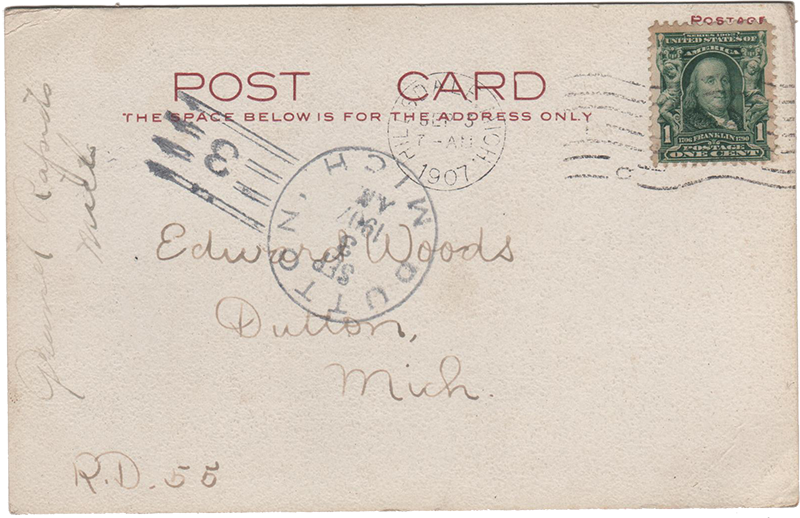 POSTAGE
POST CARD
THE SPACE BELOW IS FOR THE ADDRESS ONLY
SERIES 1902
UNITED STATES OF
AMERICA
1 1706 FRANKLIN 1790 1
POSTAGE
ONE CENT
HILLSDALE, MICH.
SEP 3
7-AM
1907
3
DUTTON, MICH.
SEP
1907
AM
Edward Woods
Dutton,
Mich.
R.D. 55
Rapids